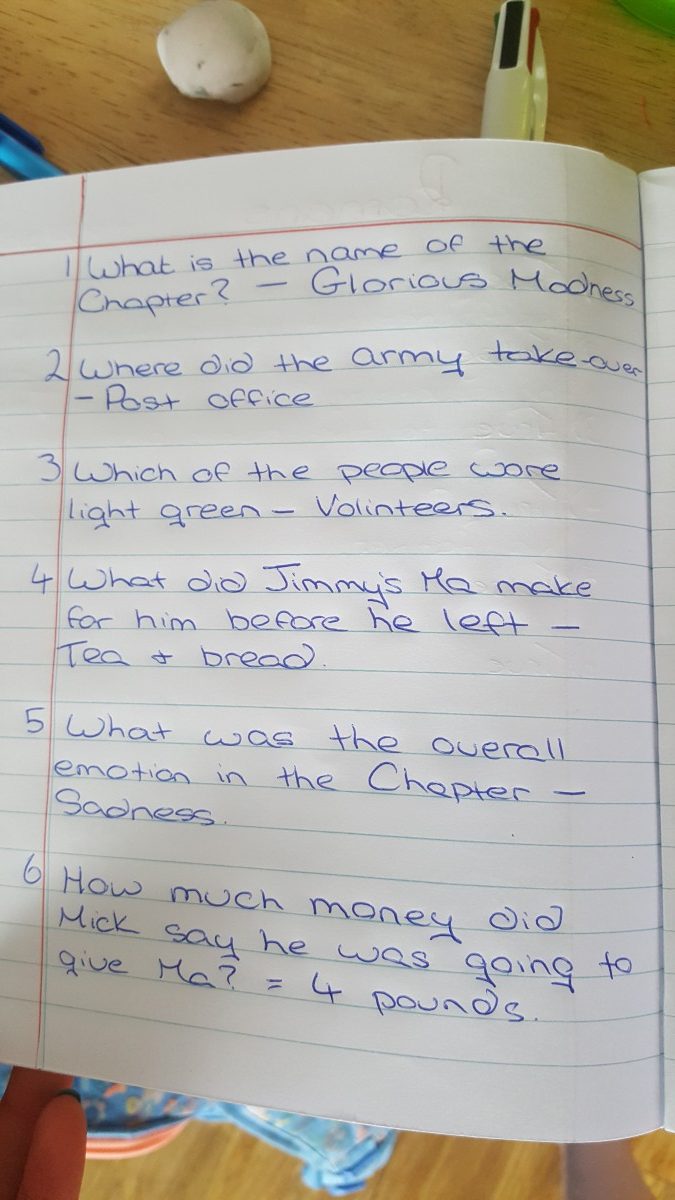 1 What is the name of the
Chapter? - Glorious Madness
2 Where did the army take over
- Post office
3 Which of the people wore
light green - Volinteers.
4 What did Jimmy's Ma make
for him before he left -
Tea & bread.
5 What was the overall
emotion in the Chapter -
Sadness.
6 How much money did
Mick say he was going to
give Ma? = 4 pounds.